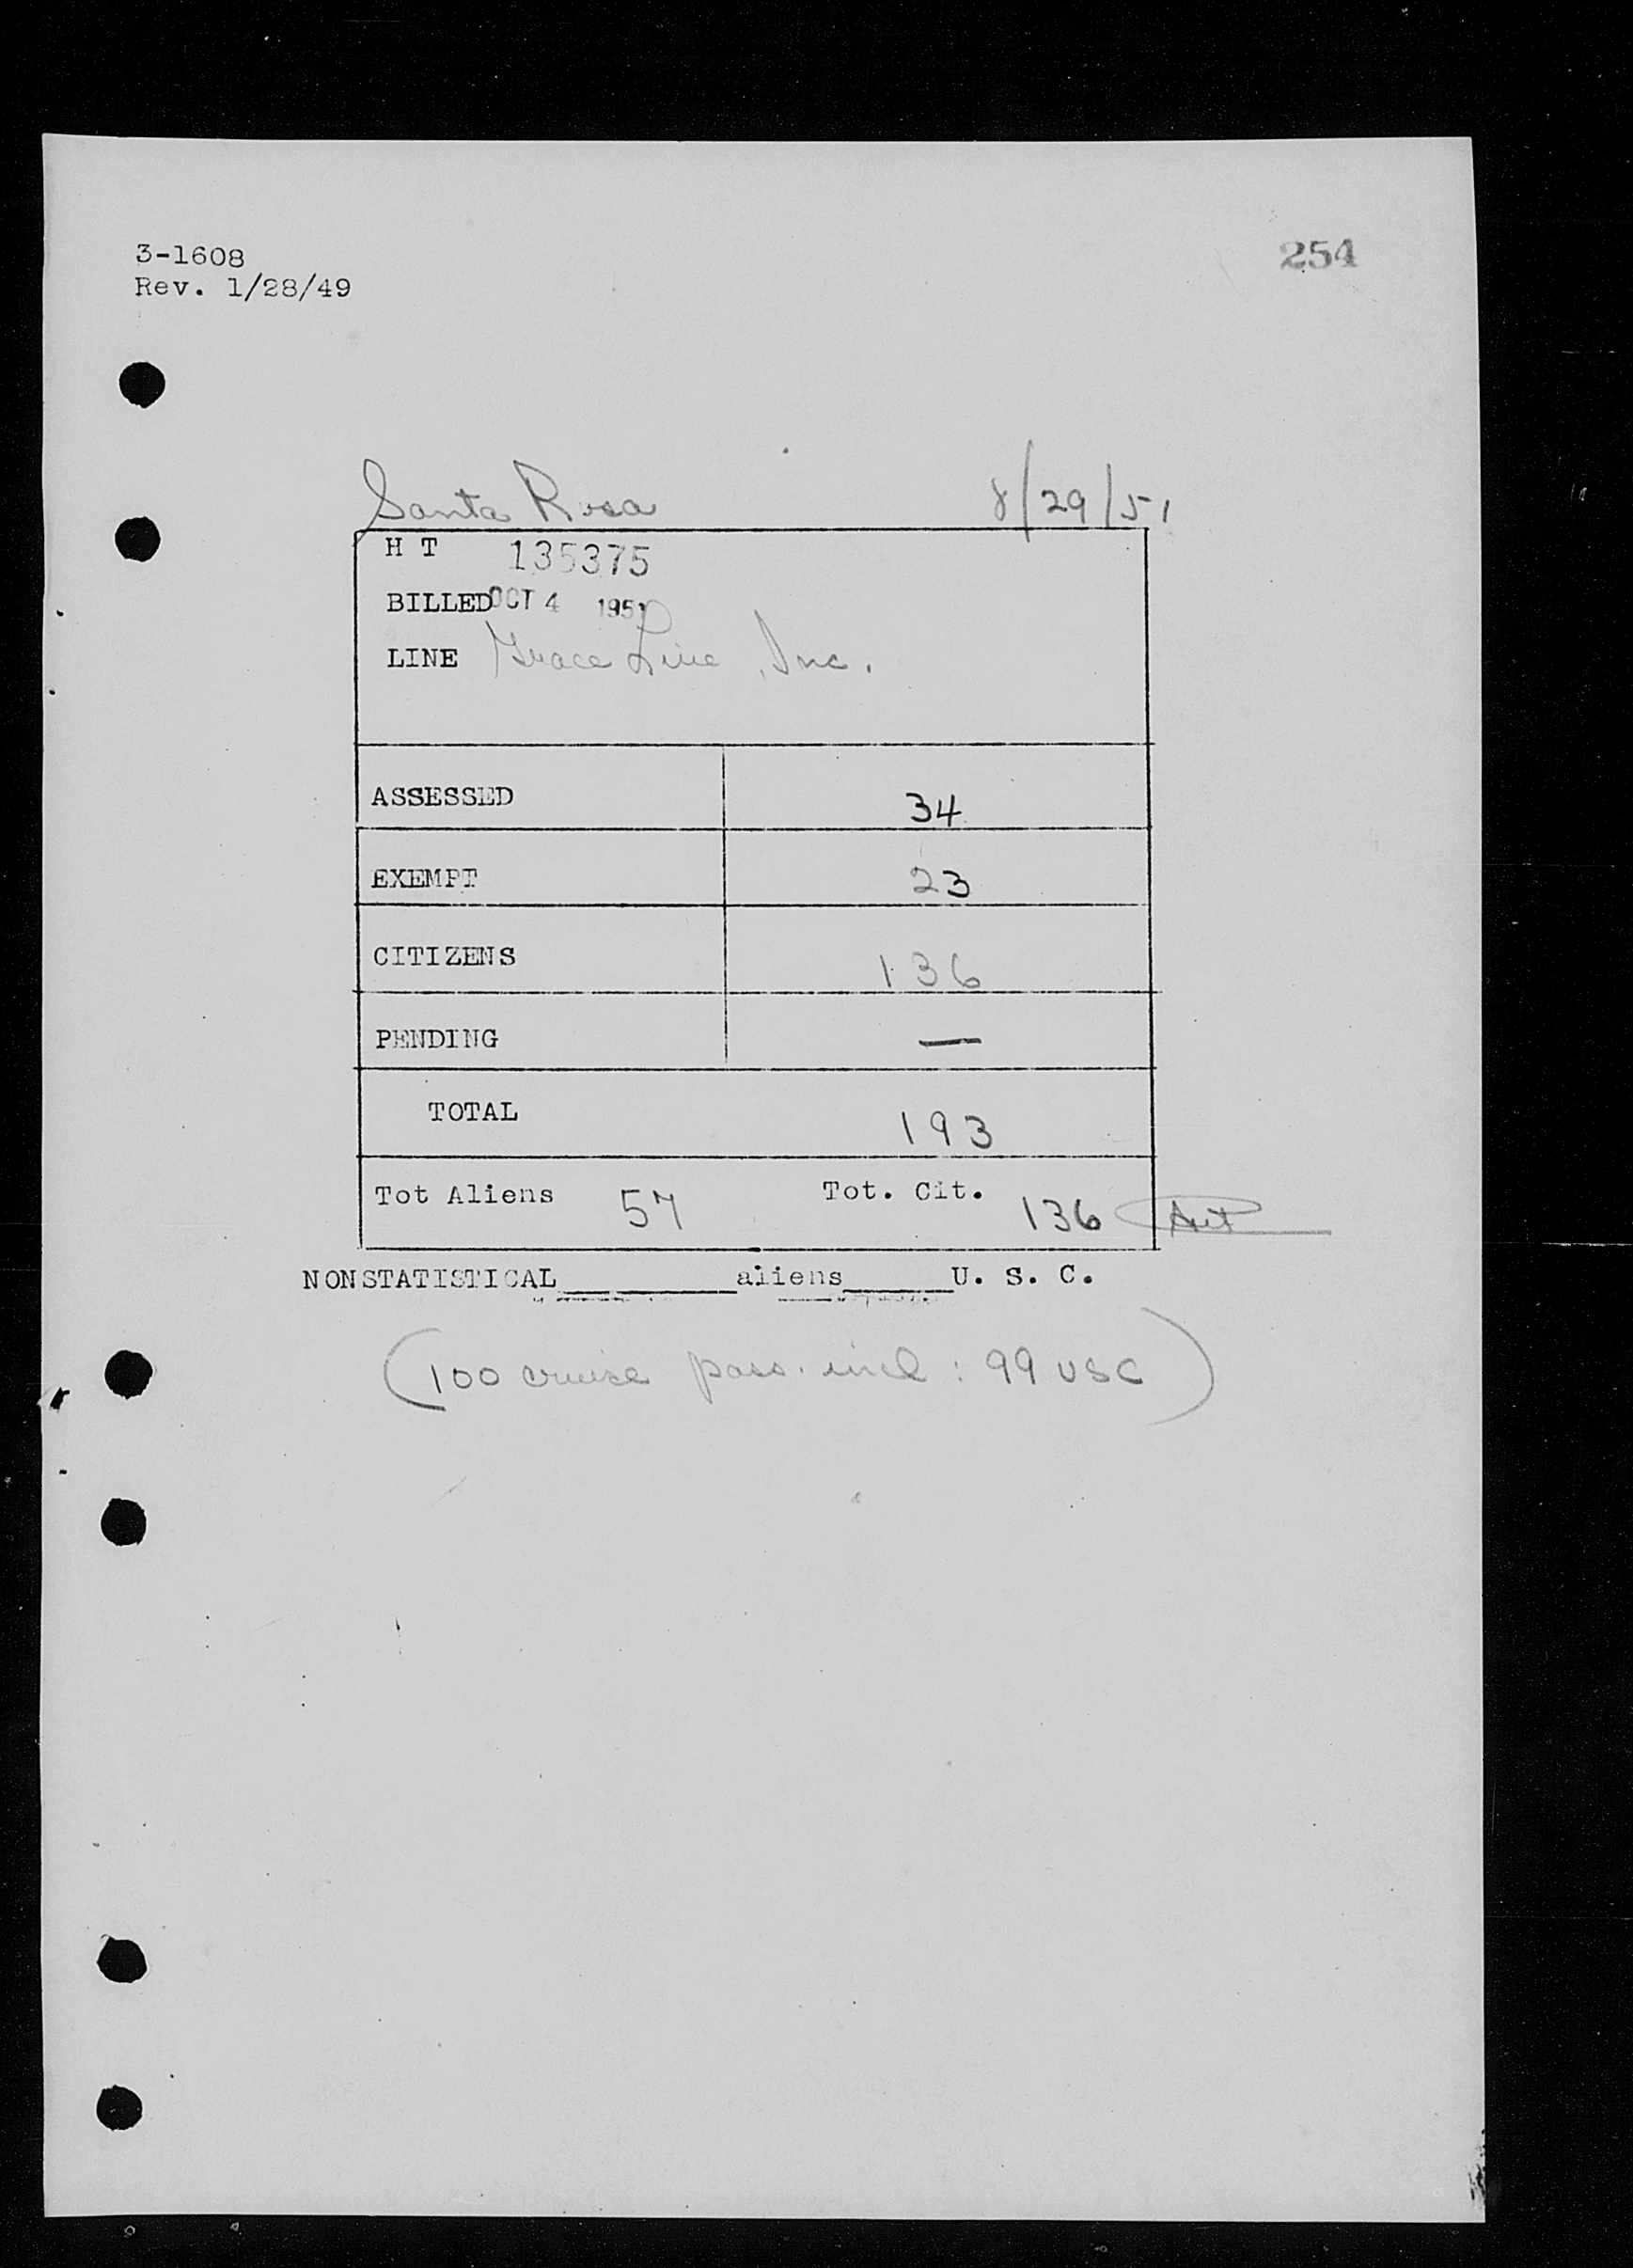 3-1608
254
Rev. 1/28/49
Santa Rosa 8/29/51
H T 135375
BILLED OCT 4 1951
LINE Grace Line, Inc.
ASSESSED 34
EXEMPT 23
CITIZENS 136
PENDING —
TOTAL 193
Tot Aliens 57 Tot. Cit. 136
NONSTATISTICAL aliens U. S. C.
(100 cruise pass. incl: 99 USC)